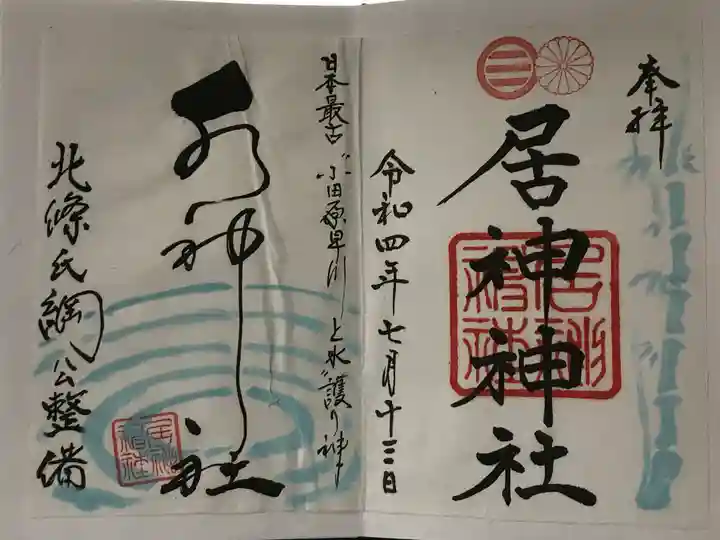 奉拝
居神神社
令和四年七月十三日
日本最古 "小田原早川上水" 護り神
水神社
北條氏綱公整備